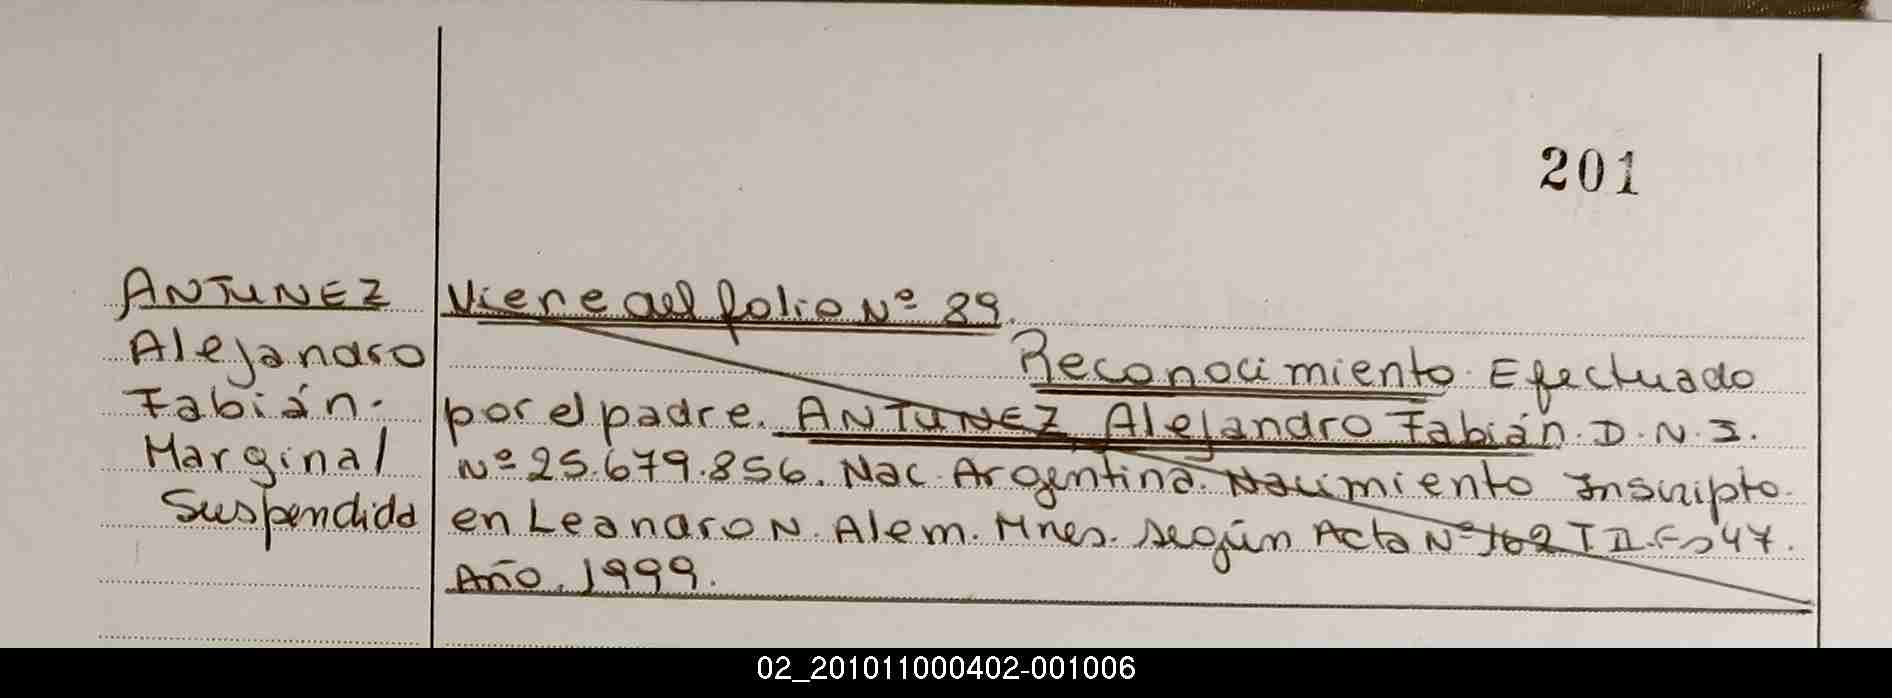 201
ANTUNEZ
Alejandro
Fabián.
Marginal
Suspendida
Viene del folio Nº 89.
Reconocimiento Efectuado
por el padre. ANTUNEZ Alejandro Fabián. D.N.I.
Nº 25.679.856. Nac. Argentina. Nacimiento Inscripto
en Leandro N. Alem. Mnes. según Acta Nº 162 T II. Fº 47.
Año. 1999.
02_201011000402-001006